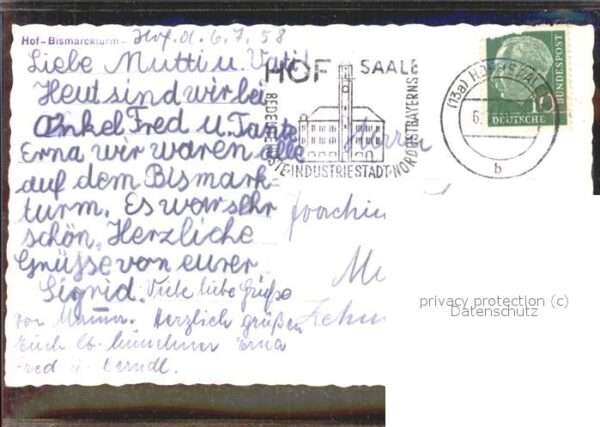 Hof-Bismarckturm
Hof. d. 6.7.58
Liebe Mutti u. Vati!
Heut sind wir bei
Onkel Fred u. Tante
Erna wir waren alle
auf dem Bismark-
turm. Es war sehr
schön. Herzliche
Grüsse von eurer
Sigrid. Viele liebe Grüße
von Mama. Herzlich grüßen
Euch lb. Münchner Erna
Fred u. Gerndl.
HOF SAALE
BEDEUTENDSTE INDUSTRIESTADT NORDOSTBAYERNS
(13a) HOF (SAALE)
b
10
DEUTSCHE
BUNDESPOST
Herrn
Joachim
privacy protection (c)
Datenschutz